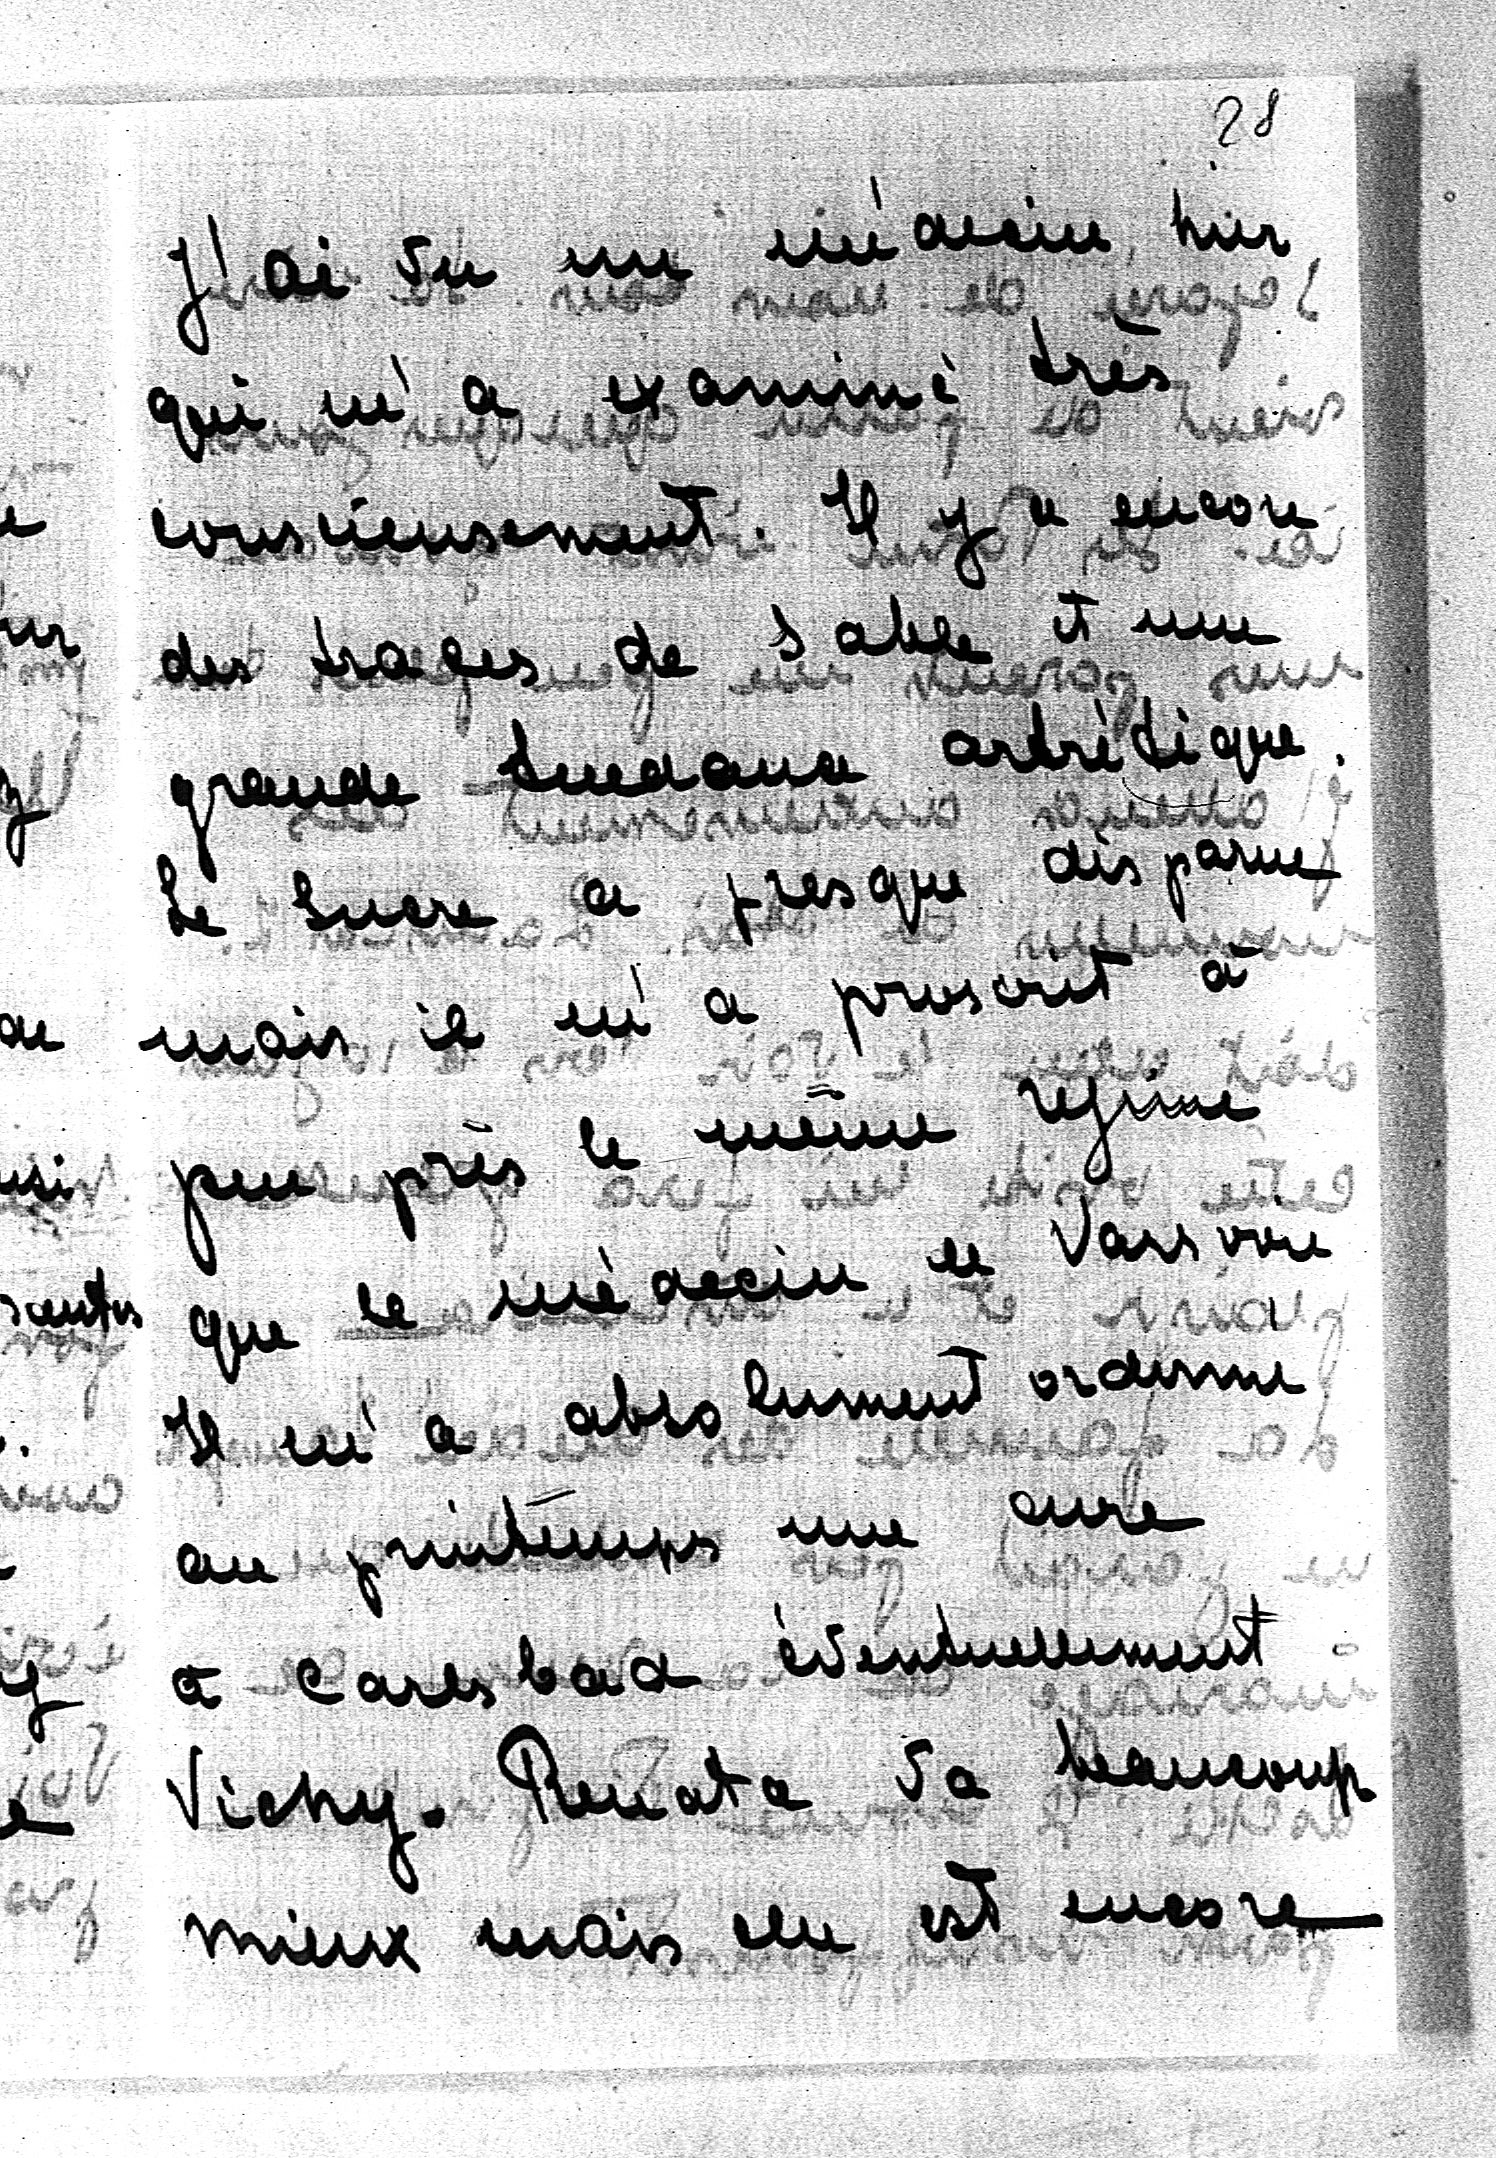 28
J'ai vu un médecin hier
qui m'a examiné très
consciensement. Il y a encore
des traces de sable et une
grande tendance artritique.
Le sucre a presque disparue
mais il m'a prescrit à
peu près le même régime
que le médecin de Varsovie
Il m'a absolument ordonné
au printemps une cure
a Carlsbad éventuellement
Vichy. Renata va beaucoup
mieux mais elle est encore